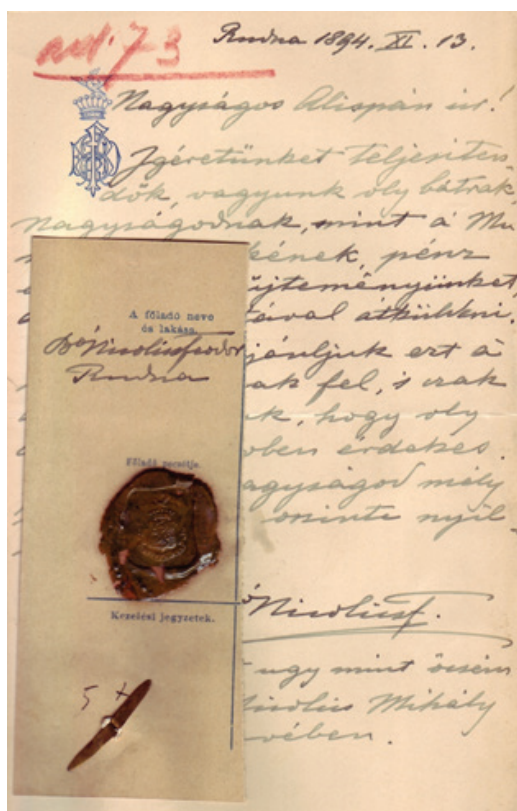 73
Rudna 1894. XI. 13.
Nagyságos Alispán úr!
Igéretünket teljesiten-
dők, vagyunk oly bátrak,
Nagyságodnak, mint a Mu
kének, pénz
űjteményünket,
tával átküldeni.
jánljuk ezt a
ak fel, s csak
k, hogy oly
ben érdekes.
agyságod mély
oszinte nyil-
Nicolicsf.
ugy mint öcsém
Nicolics Mihály
vében.
A föladó neve
és lakása.
Bó Nicolicsfeodor
Rudna
Föladó pecsétje.
Kezelési jegyzetek.
5